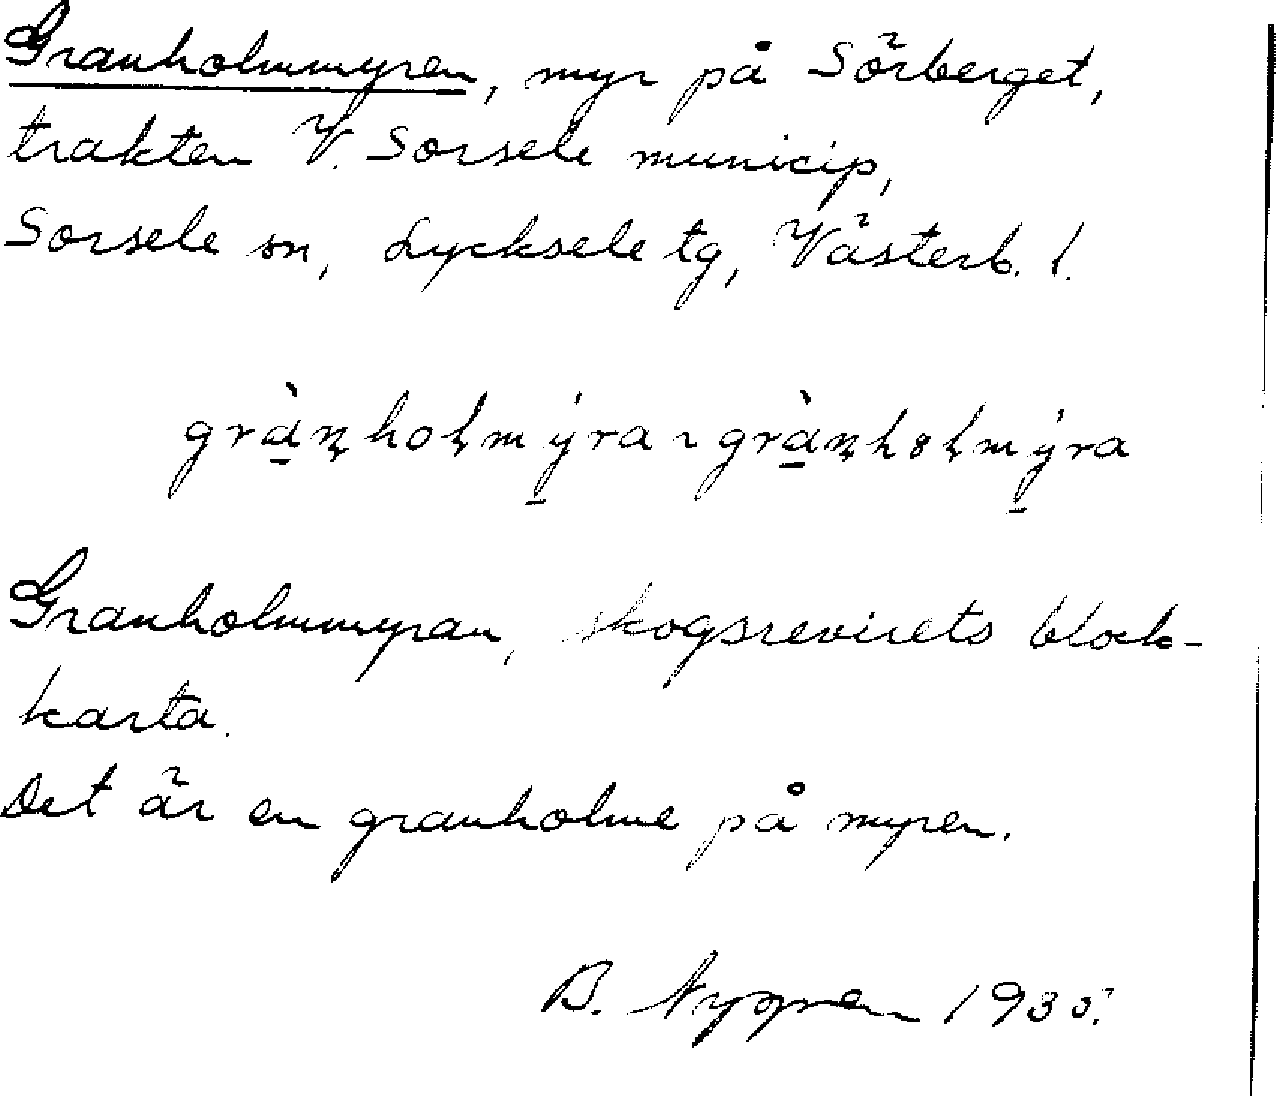 Granholmmyren, myr på Sörberget,
trakten V. Sorsele municip,
Sorsele sn, Lycksele tg, Västerb. l.
grànholmýra ~ grànholmýra
Granholmmyran, skogsrevirets block-
karta.
Det är en granholme på myren.
B. Nygren 1935.